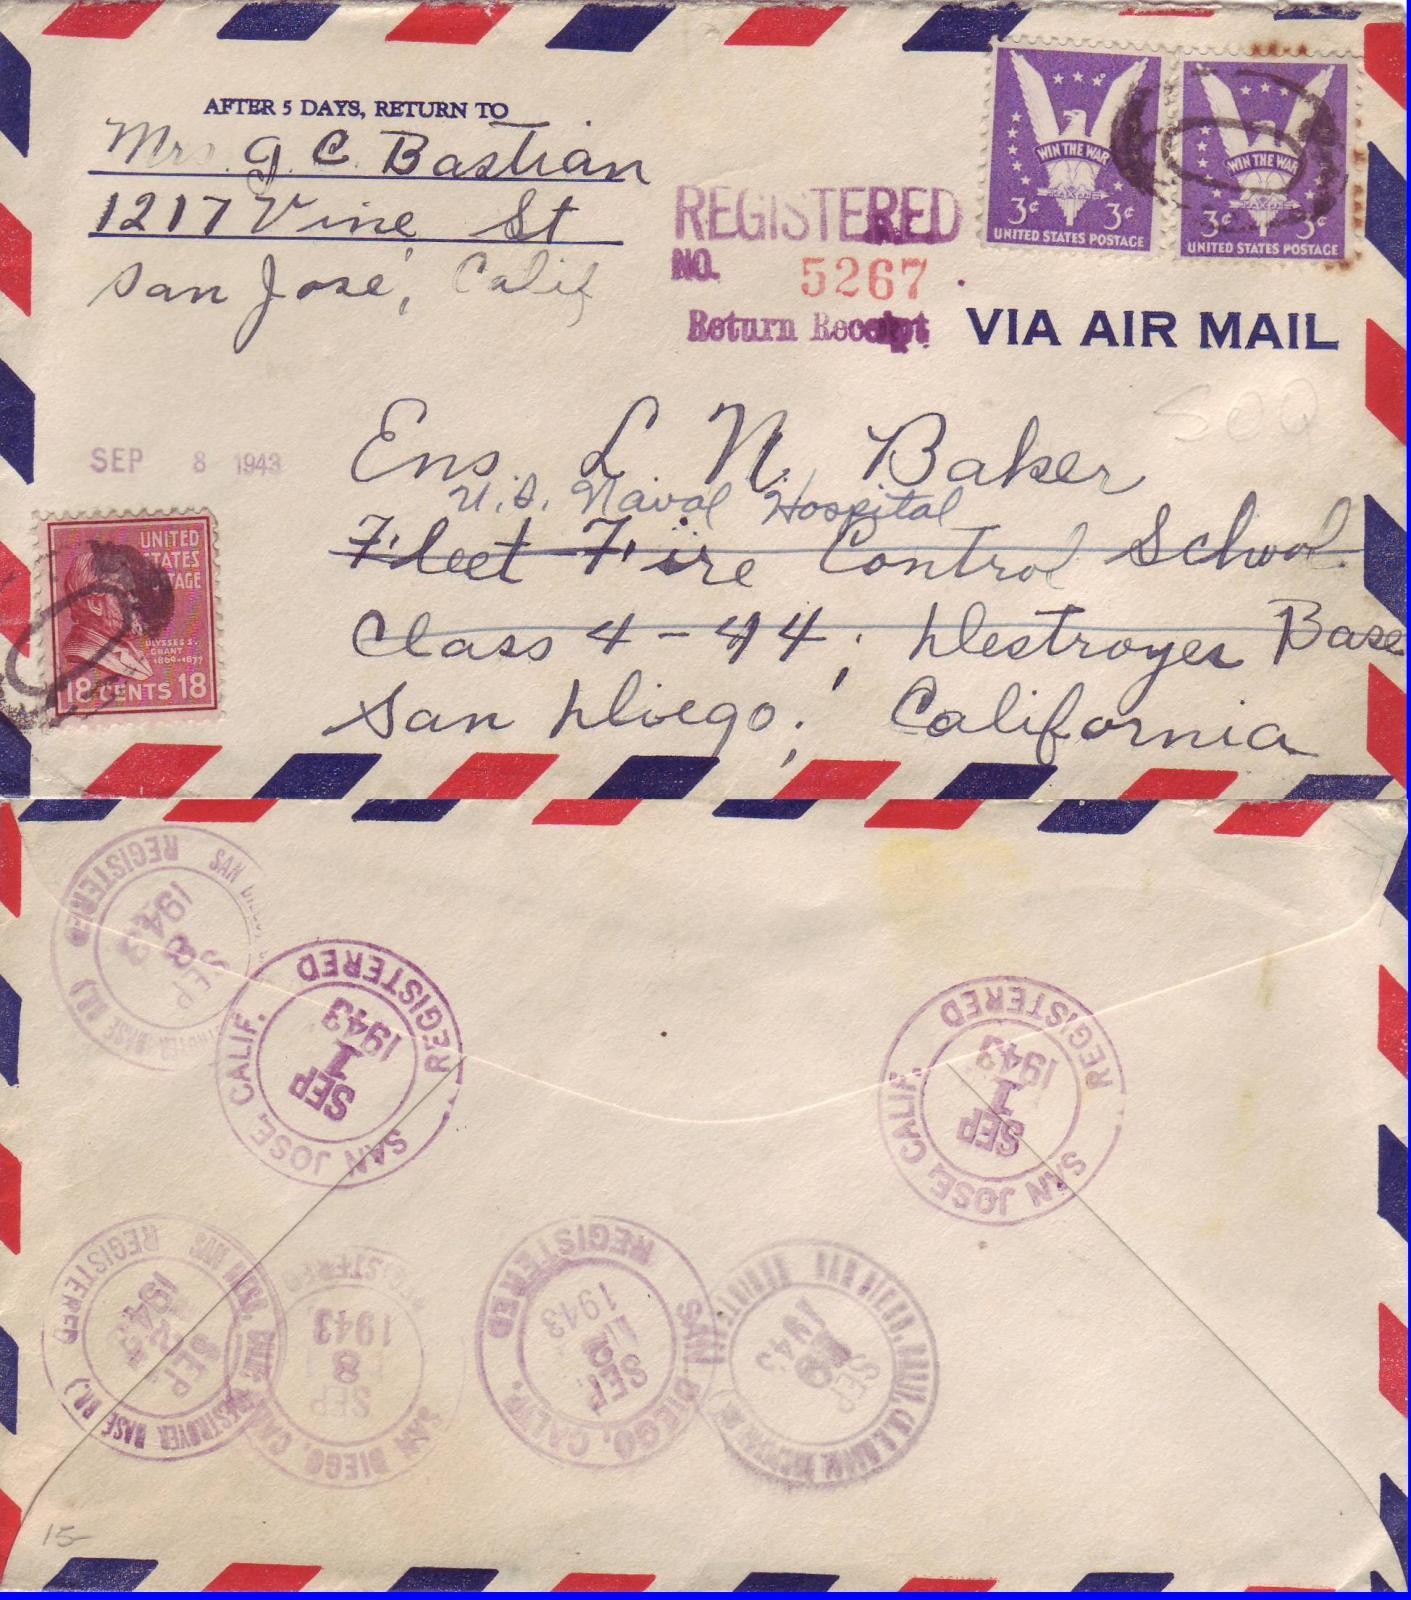 AFTER 5 DAYS, RETURN TO
Mrs. G. C. Bastian
1217 Vine St
San José, Calif
REGISTERED
NO. 5267
Return Receipt
WIN THE WAR
3¢ 3¢
UNITED STATES POSTAGE
WIN THE WAR
3¢ 3¢
UNITED STATES POSTAGE
VIA AIR MAIL
SOQ
SEP 8 1943
Ens. L. N. Baker
U.S. Naval Hospital
Fleet Fire Control School
Class 4-44, Destroyer Base
San Diego, California
UNITED
STATES
POSTAGE
ULYSSES S.
GRANT
1869-1877
18 CENTS 18
REGISTERED
SAN
SEP
8
1943
BASE BR.)
REGISTERED
SEP
1
1943
SAN JOSE, CALIF.
REGISTERED
SEP
1
1943
SAN JOSE, CALIF.
REGISTERED
SEP
2
1943
DESTROYER BASE BR.)
REGISTERED
SEP
8
1943
SAN DIEGO, CAL
REGISTERED
SEP
1943
SAN DIEGO, CALIF.
SEP
9
1943
15-